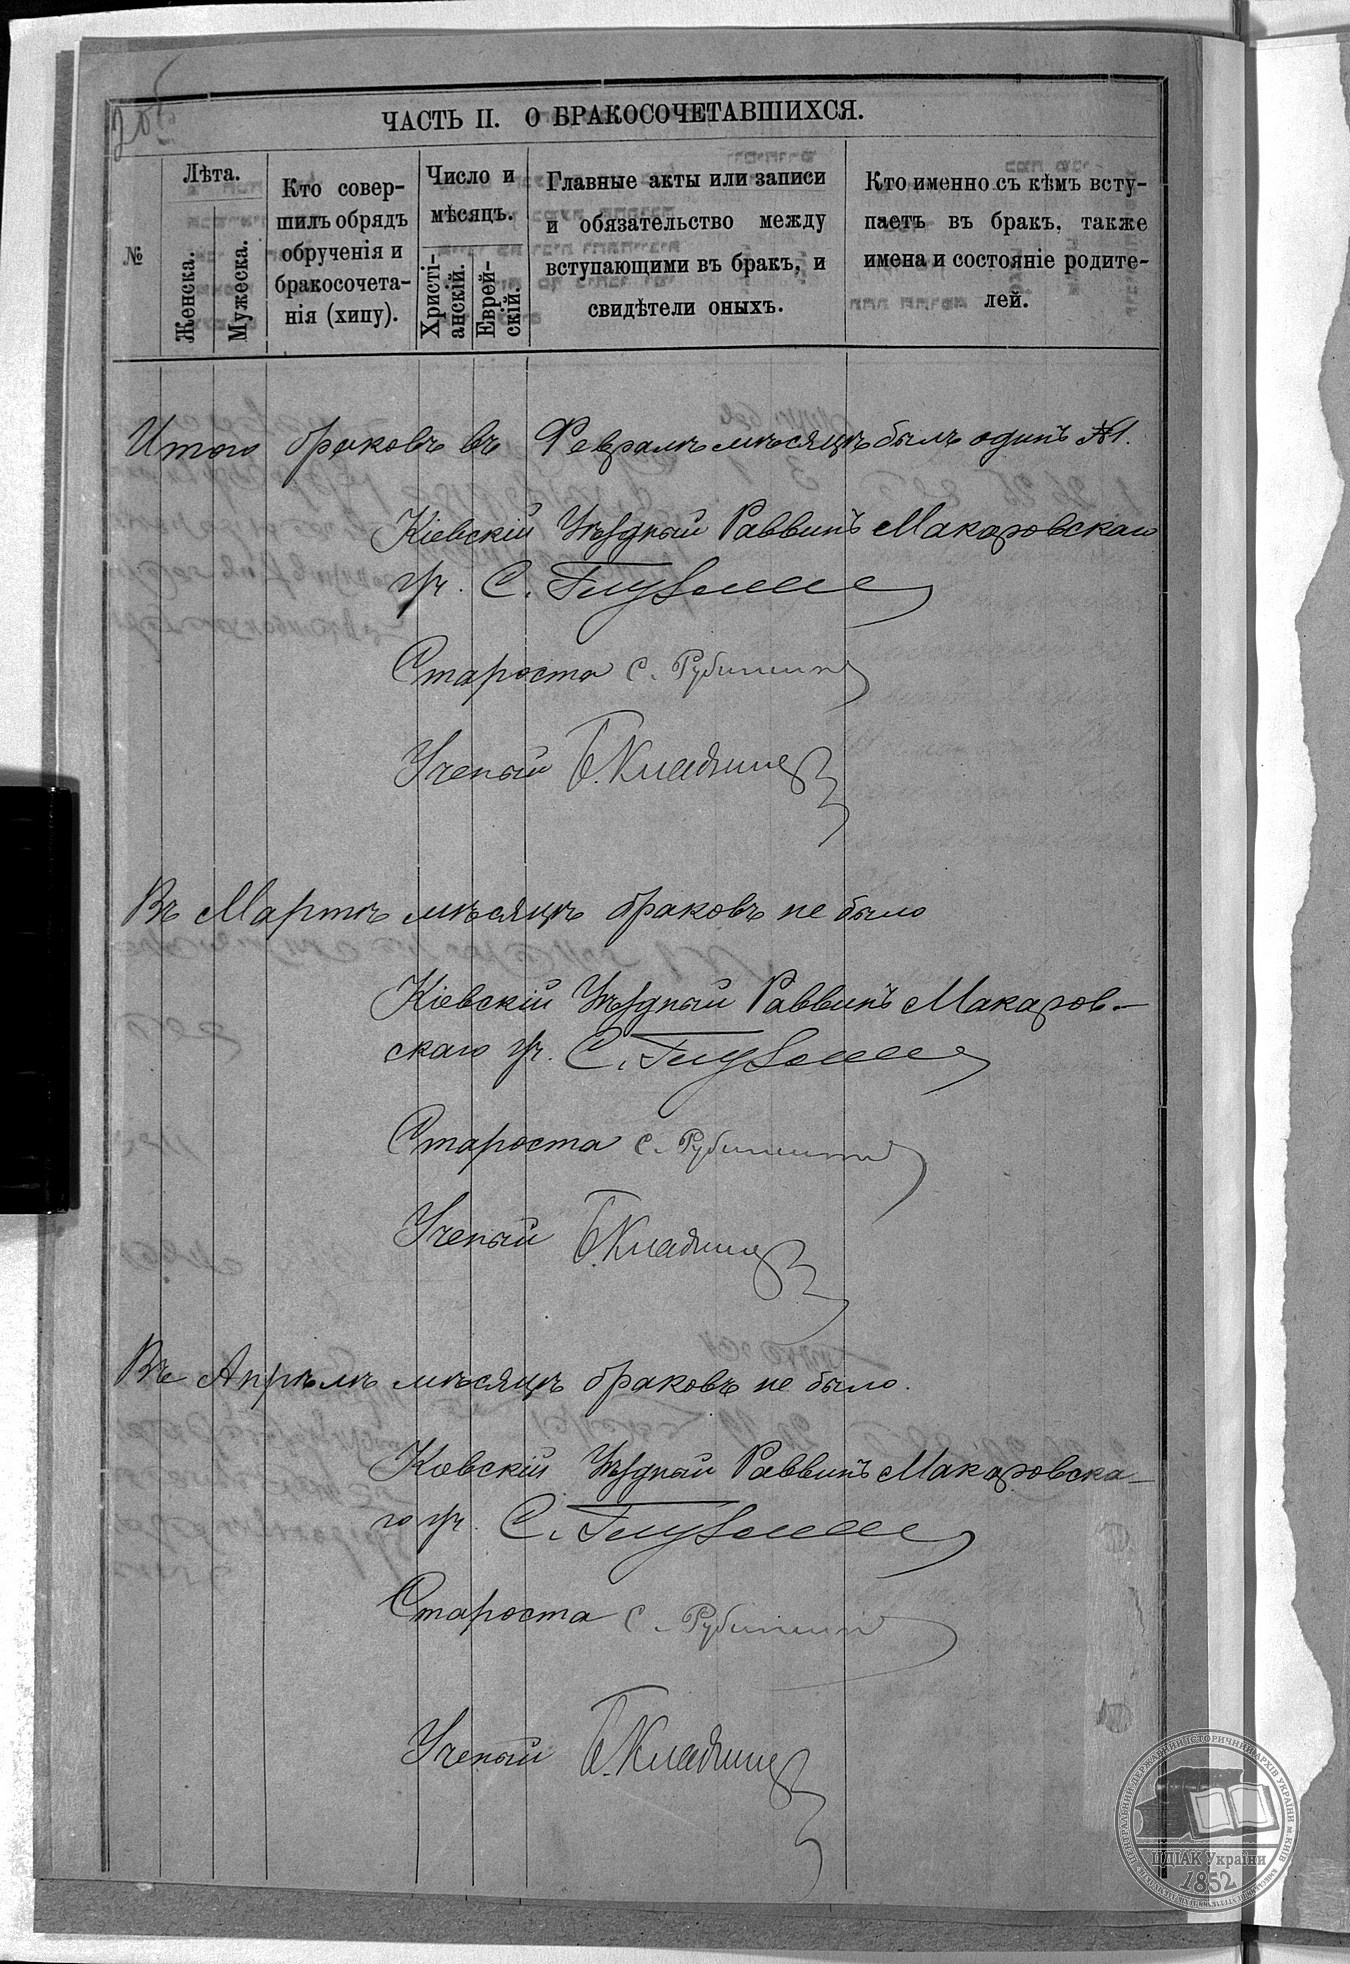 ЧАСТЬ II. О БРАКОСОЧЕТАВШИХСЯ.
№
Лѣта.
Женска.
Мужеска.
Кто совер-
шилъ обрядъ
обрученія и
бракосочета-
нія (хипу).
Число и
мѣсяцъ.
Христі-
анскій.
Еврей-
скій.
Главные акты или записи
и обязательство между
вступающими въ бракъ, и
свидѣтели оныхъ.
Кто именно съ кѣмъ всту-
паетъ въ бракъ, также
имена и состояніе родите-
лей.
Итого браковъ въ Февралѣ мѣсяцѣ былъ одинъ №1.
Кіевскій Уѣздный Раввинъ Макаровскаго
уч. С.
Староста С.
Ученый Б.
Въ Мартѣ мѣсяцѣ браковъ не было
Кіевскій Уѣздный Раввинъ Макаров-
скаго уч. С.
Староста С.
Ученый Б.
Въ Апрѣлѣ мѣсяцѣ браковъ не было.
Кіевскій Уѣздный Раввинъ Макаровска-
го уч. С.
Староста С.
Ученый Б.
ЦЕНТРАЛЬНИЙ ДЕРЖАВНИЙ ІСТОРИЧНИЙ АРХІВ УКРАЇНИ м. КИЇВ
ЦДІАК України
1852